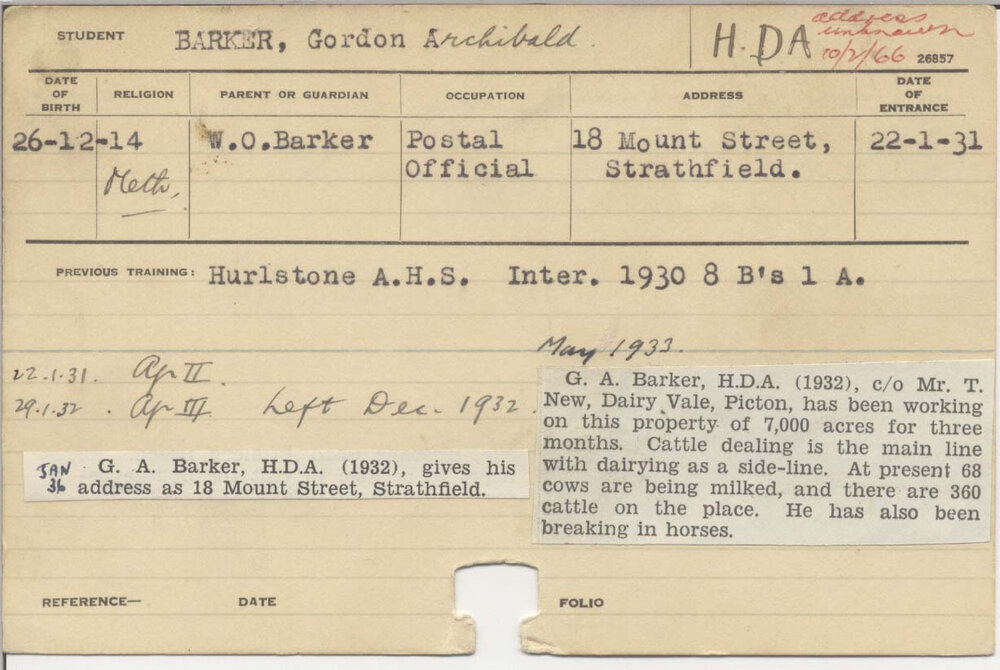 STUDENT BARKER, Gordon Archibald. H.D A address
unknown
10/2/66 26857
DATE OF BIRTH RELIGION PARENT OR GUARDIAN OCCUPATION ADDRESS DATE OF ENTRANCE
26-12-14 W.O.Barker Postal 18 Mount Street, 22-1-31
Meth, Official Strathfield.
PREVIOUS TRAINING: Hurlstone A.H.S. Inter. 1930 8 B's 1 A.
22.1.31. Ag II.
29.1.32. Ag III Left Dec. 1932.
JAN 36
G. A. Barker, H.D.A. (1932), gives his
address as 18 Mount Street, Strathfield.
May 1933.
G. A. Barker, H.D.A. (1932), c/o Mr. T.
New, Dairy Vale, Picton, has been working
on this property of 7,000 acres for three
months. Cattle dealing is the main line
with dairying as a side-line. At present 68
cows are being milked, and there are 360
cattle on the place. He has also been
breaking in horses.
REFERENCE— DATE FOLIO